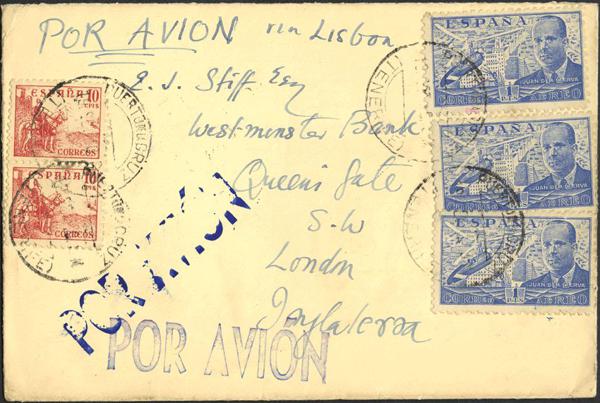 POR AVION via Lisbon
E. J. Stiff Esq
Westminster Bank
Queens Gate
S.W
London
Inglaterra
POR AVIÓN
POR AVIÓN
ESPAÑA
10
CTS
CORREOS
ESPAÑA
10
CTS
CORREOS
PUERTO DE LA CRUZ
(TENERIFE)
ESPAÑA
JUAN DE LA CIERVA
CORREO 1 PTS AEREO
ESPAÑA
JUAN DE LA CIERVA
CORREO 1 PTS AEREO
ESPAÑA
JUAN DE LA CIERVA
CORREO 1 PTS AEREO